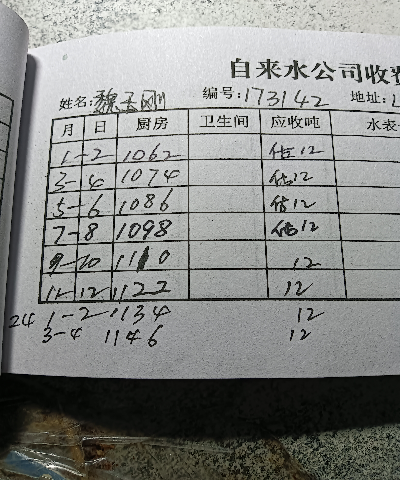 自来水公司收费
姓名: 魏玉刚 编号: 173142 地址:
月 日 厨房 卫生间 应收吨 水表
1-2 1062 估12
3-4 1074 估12
5-6 1086 估12
7-8 1098 估12
9-10 1110 12
11-12 1122 12
24 1-2 1134 12
3-4 1146 12